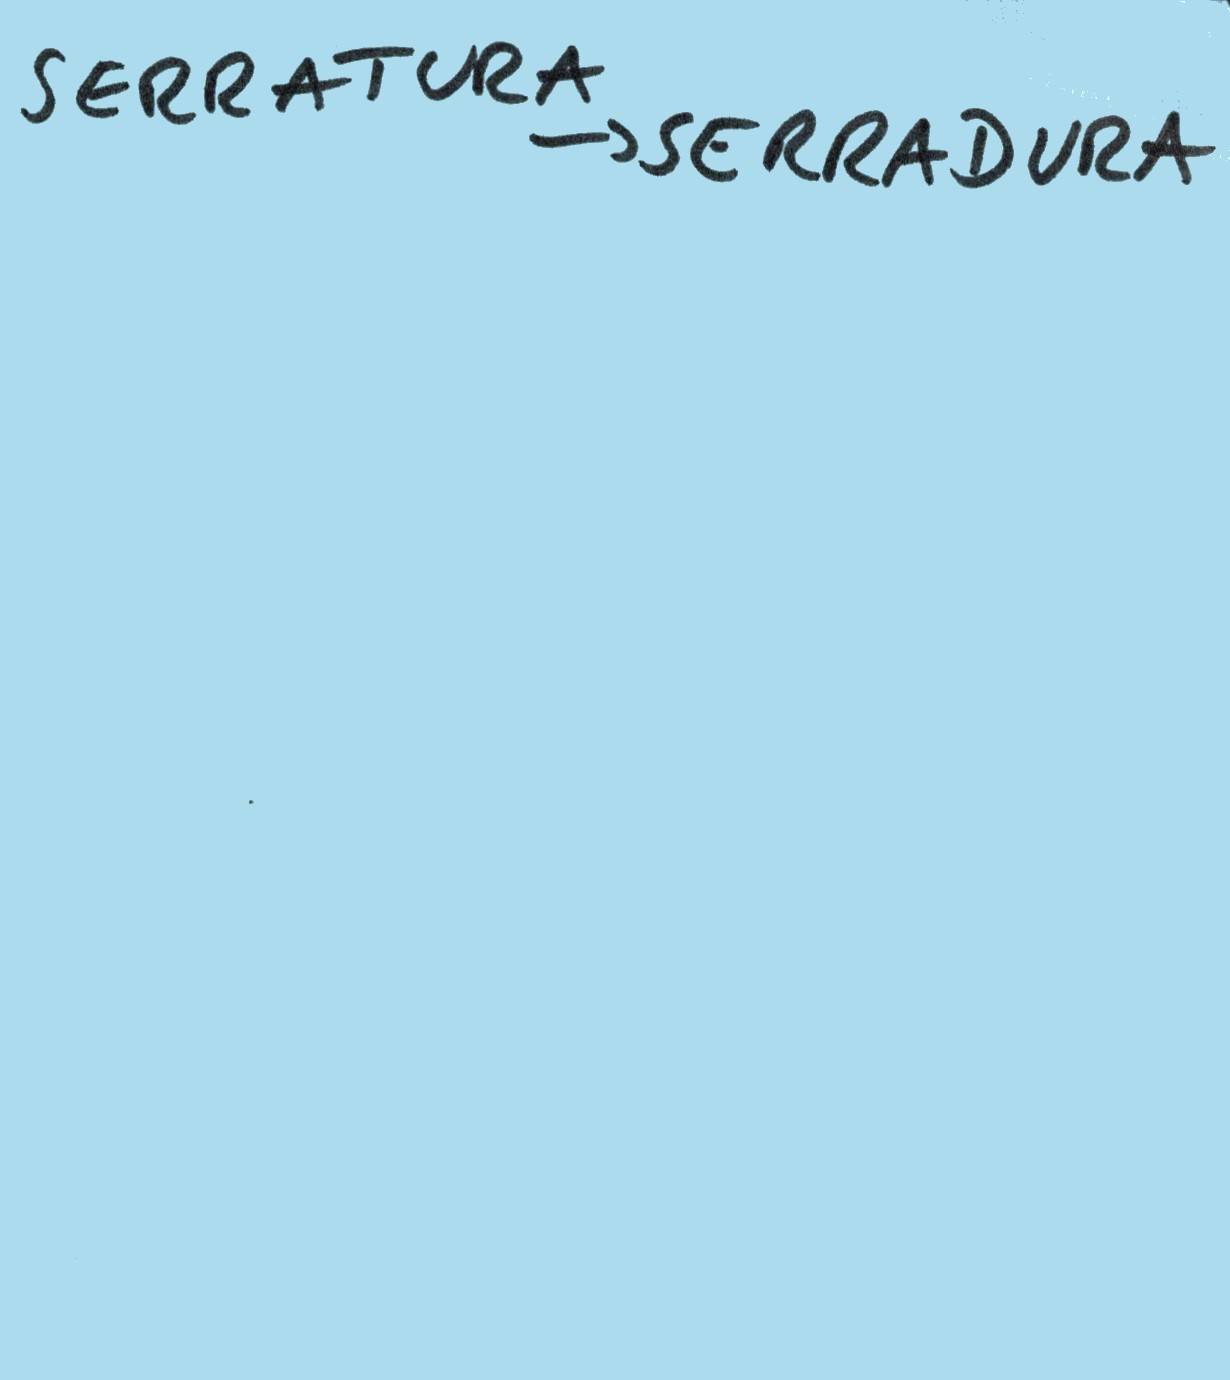 SERRATURA
→SERRADURA